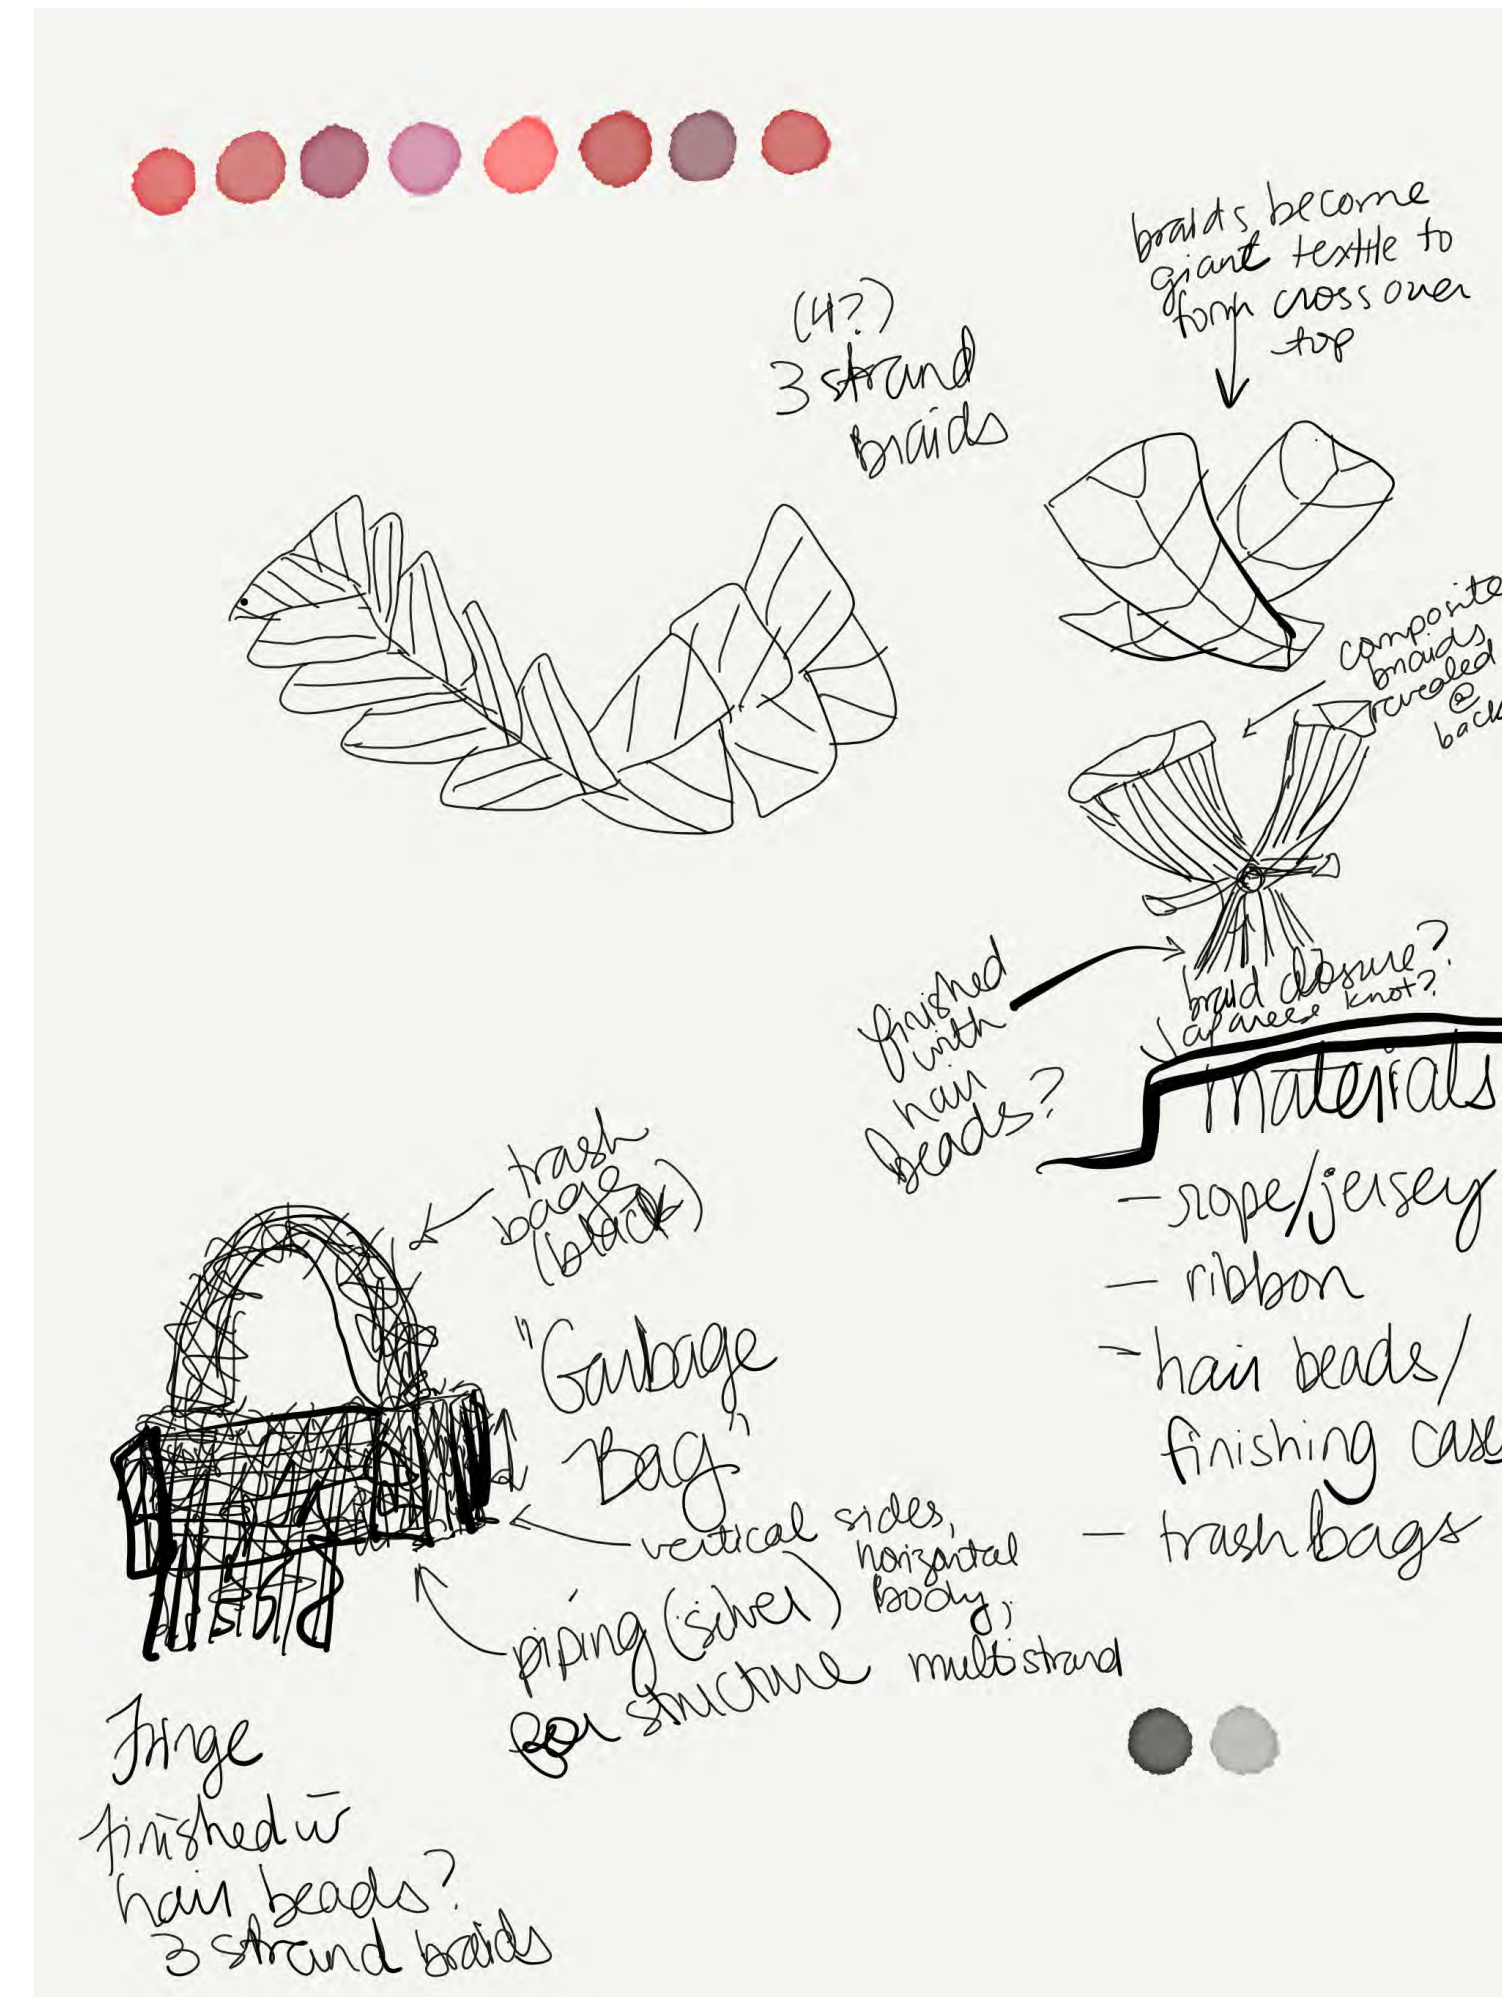 braids become
giant textile to
form cross over
top
(4?)
3 strand
braids
composite
braids
revealed
@
back
finished
with
hair
beads?
braid closure?
Japanese knot?
materials
- rope/jersey
- ribbon
- hair beads/
finishing case
- trash bags
trash
bags
(black)
"Garbage
Bag"
vertical sides,
horizontal
body,
multistrand
piping (silver)
for structure
Fringe
finished w̄
hair beads?
3 strand braids